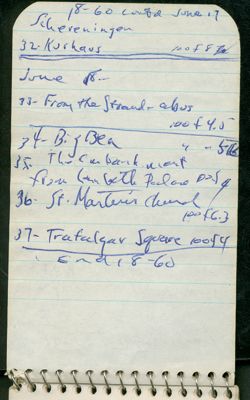 18-60 contd June 17
Scheveningen
32. Kurhaus 100 f
June 18-
33- From the Strand- a bus
100 f 4.5
34- Big Ben " - 5.6
35. The embankment
from Lambeth Palace
36- St. Martin's Church
100 f 6.3
37- Trafalgar Square 100 f 4
End 18-60